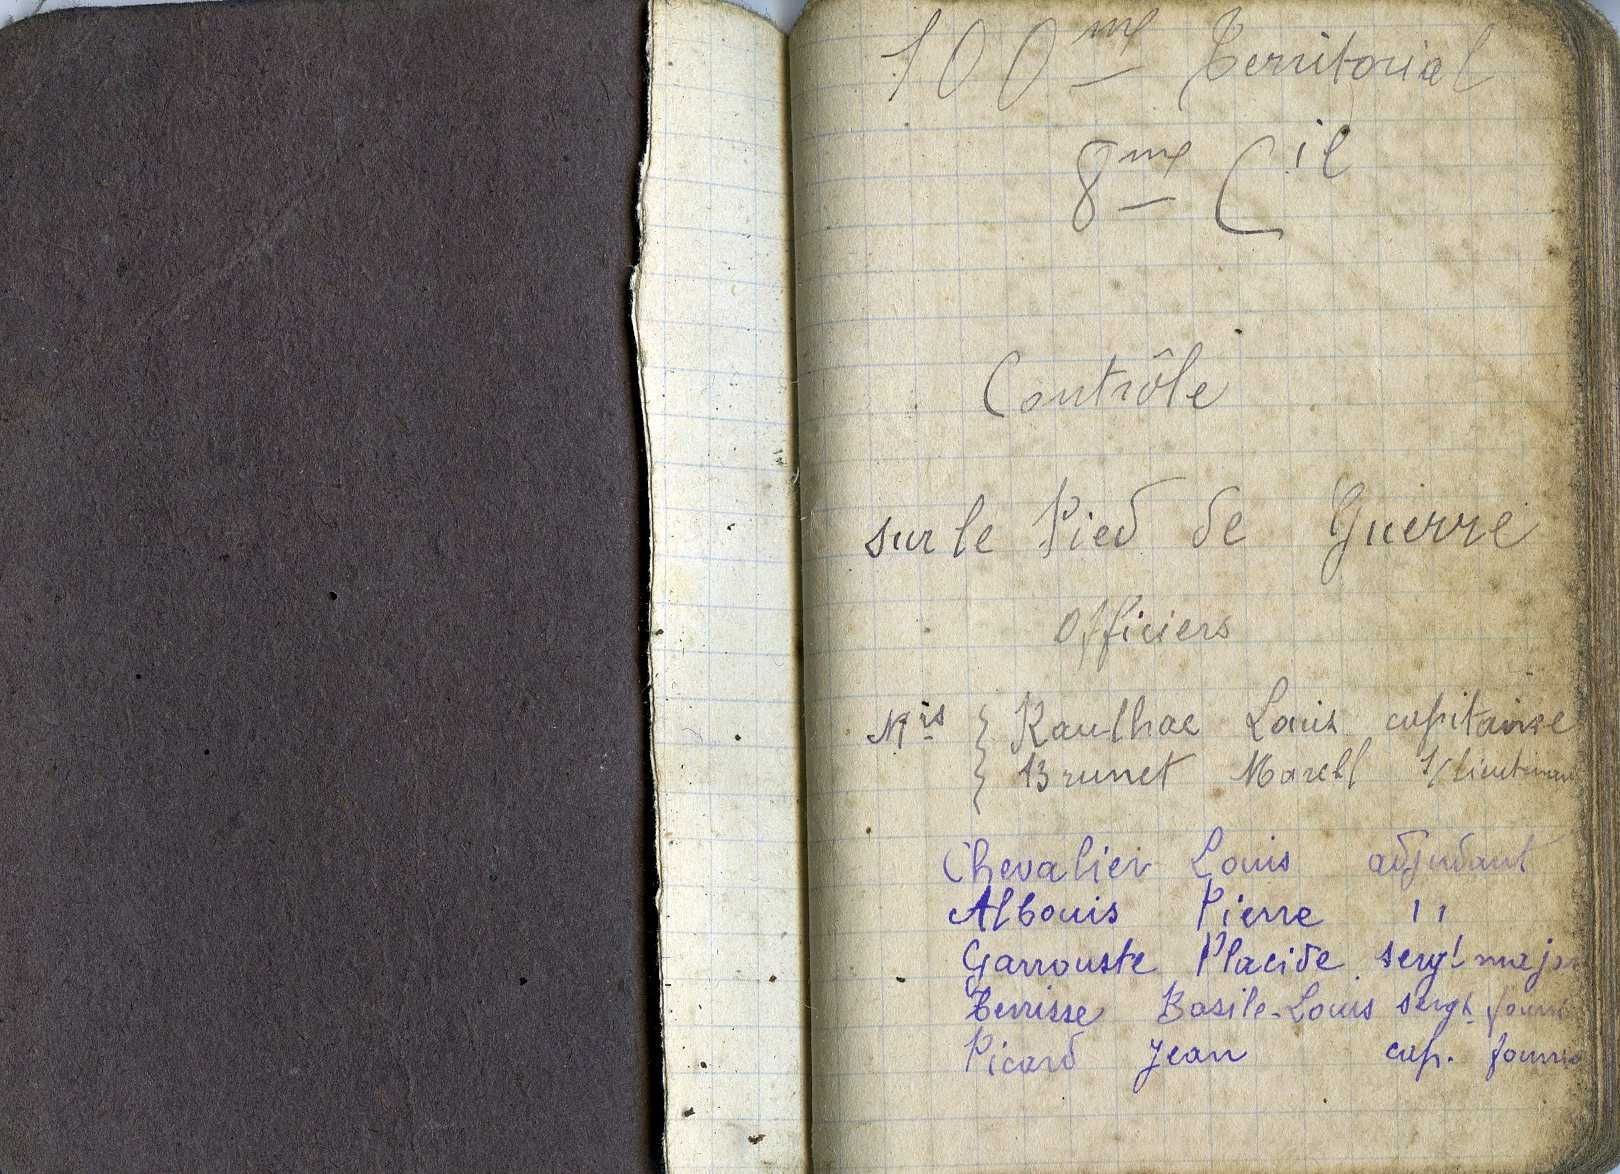 100me Territorial
8me Cie
Contrôle
sur le Pied de Guerre
Officiers
Mrs Raulhac Louis capitaine
Brunet Marcel s/lieutenant
Chevalier Louis adjudant
Albouis Pierre ''
Garrouste Placide sergt major
Terrisse Basile-Louis sergt fourri
Picard Jean cap. fourri